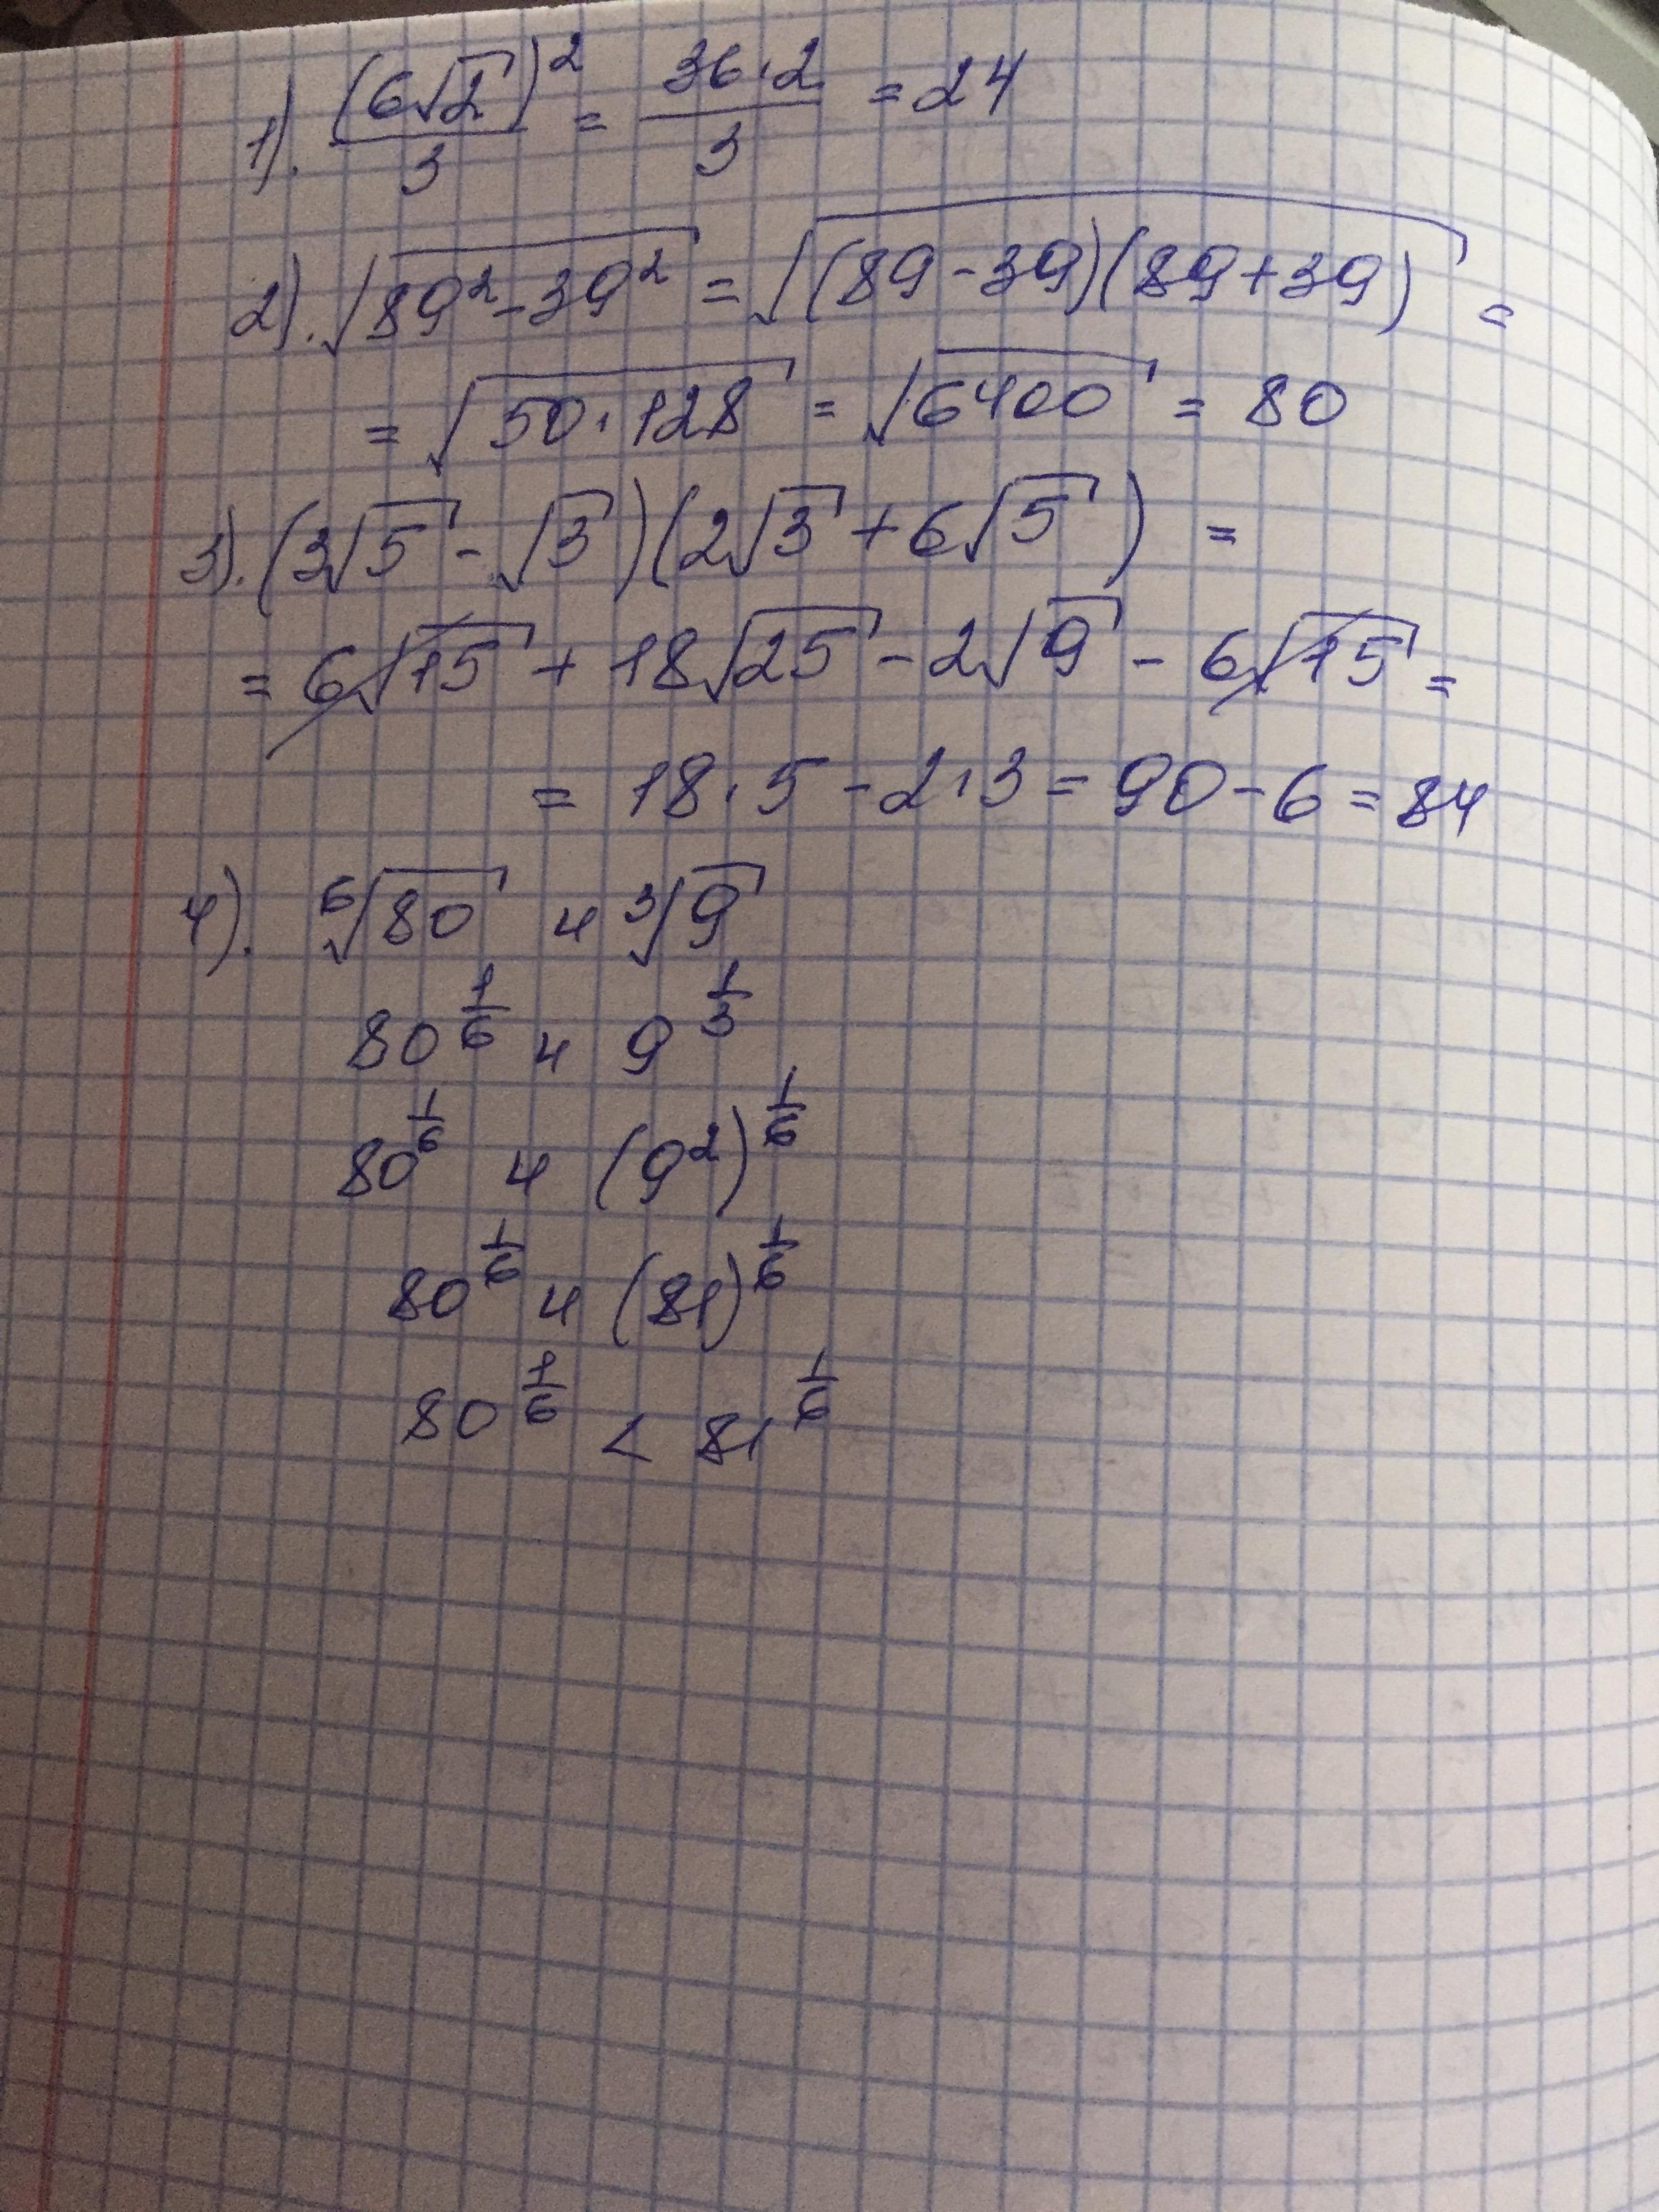 1). (6√2)²/3 = 36·2/3 = 24
2). √(89² - 39²) = √((89 - 39)(89 + 39)) =
= √(50·128) = √6400 = 80
3). (3√5 - √3)(2√3 + 6√5) =
= 6√15 + 18√25 - 2√9 - 6√15 =
= 18·5 - 2·3 = 90 - 6 = 84
4). ⁶√80 и ³√9
80^(1/6) и 9^(1/3)
80^(1/6) и (9²)^(1/6)
80^(1/6) и (81)^(1/6)
80^(1/6) < 81^(1/6)